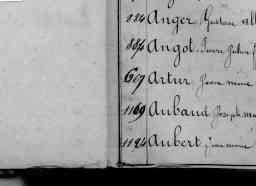 224 Anger Gustave
884 Angot Pierre
607 Artur Jean marie
1169 Aubaud Joseph ma
1124 Aubert Jean marie